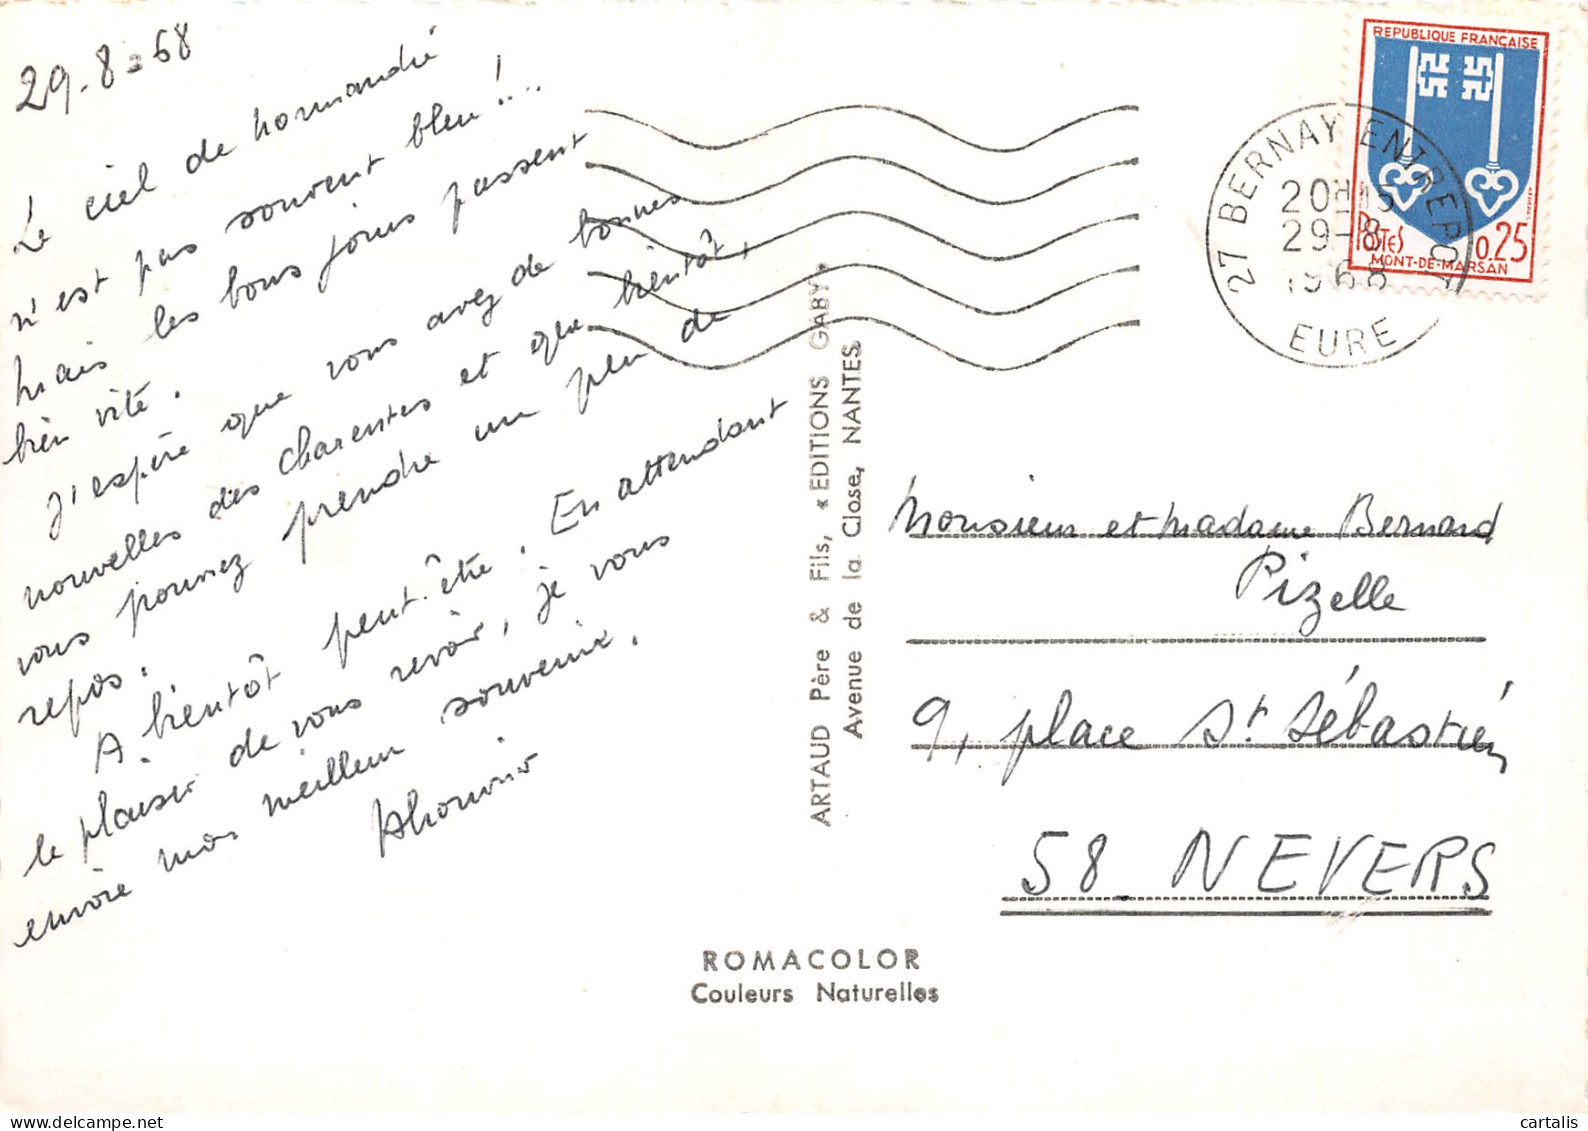 29-8-68
Le ciel de normandie
n'est pas souvent bleu!...
mais les bons jours passent
bien vite.
J'espère que vous avez de bonnes
nouvelles des Charentes et que bientôt,
vous pourrez prendre un peu de
repos.
A bientôt peut-être. En attendant
le plaisir de vous revoir, je vous
envoie mon meilleur souvenir.
ARTAUD Père & Fils, « EDITIONS GABY »
Avenue de la Close, NANTES
REPUBLIQUE FRANÇAISE
POSTES
0.25
MONT-DE-MARSAN
27 BERNAY ENTREPOT
20H15
29-8
1968
EURE
Monsieur et Madame Bernard
Pizelle
9, place St Sébastien
58 NEVERS
ROMACOLOR
Couleurs Naturelles
cartalis
www.delcampe.net